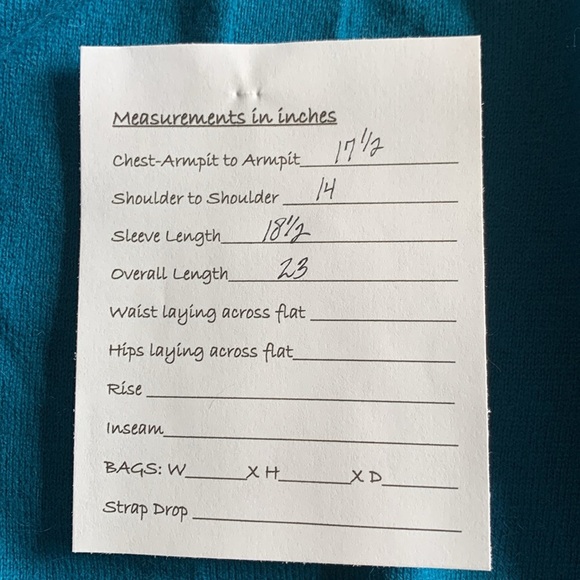 Measurements in inches
Chest-Armpit to Armpit 17 1/2
Shoulder to Shoulder 14
Sleeve Length 18 1/2
Overall Length 23
Waist laying across flat
Hips laying across flat
Rise
Inseam
BAGS: W_____X H_____X D_____
Strap Drop